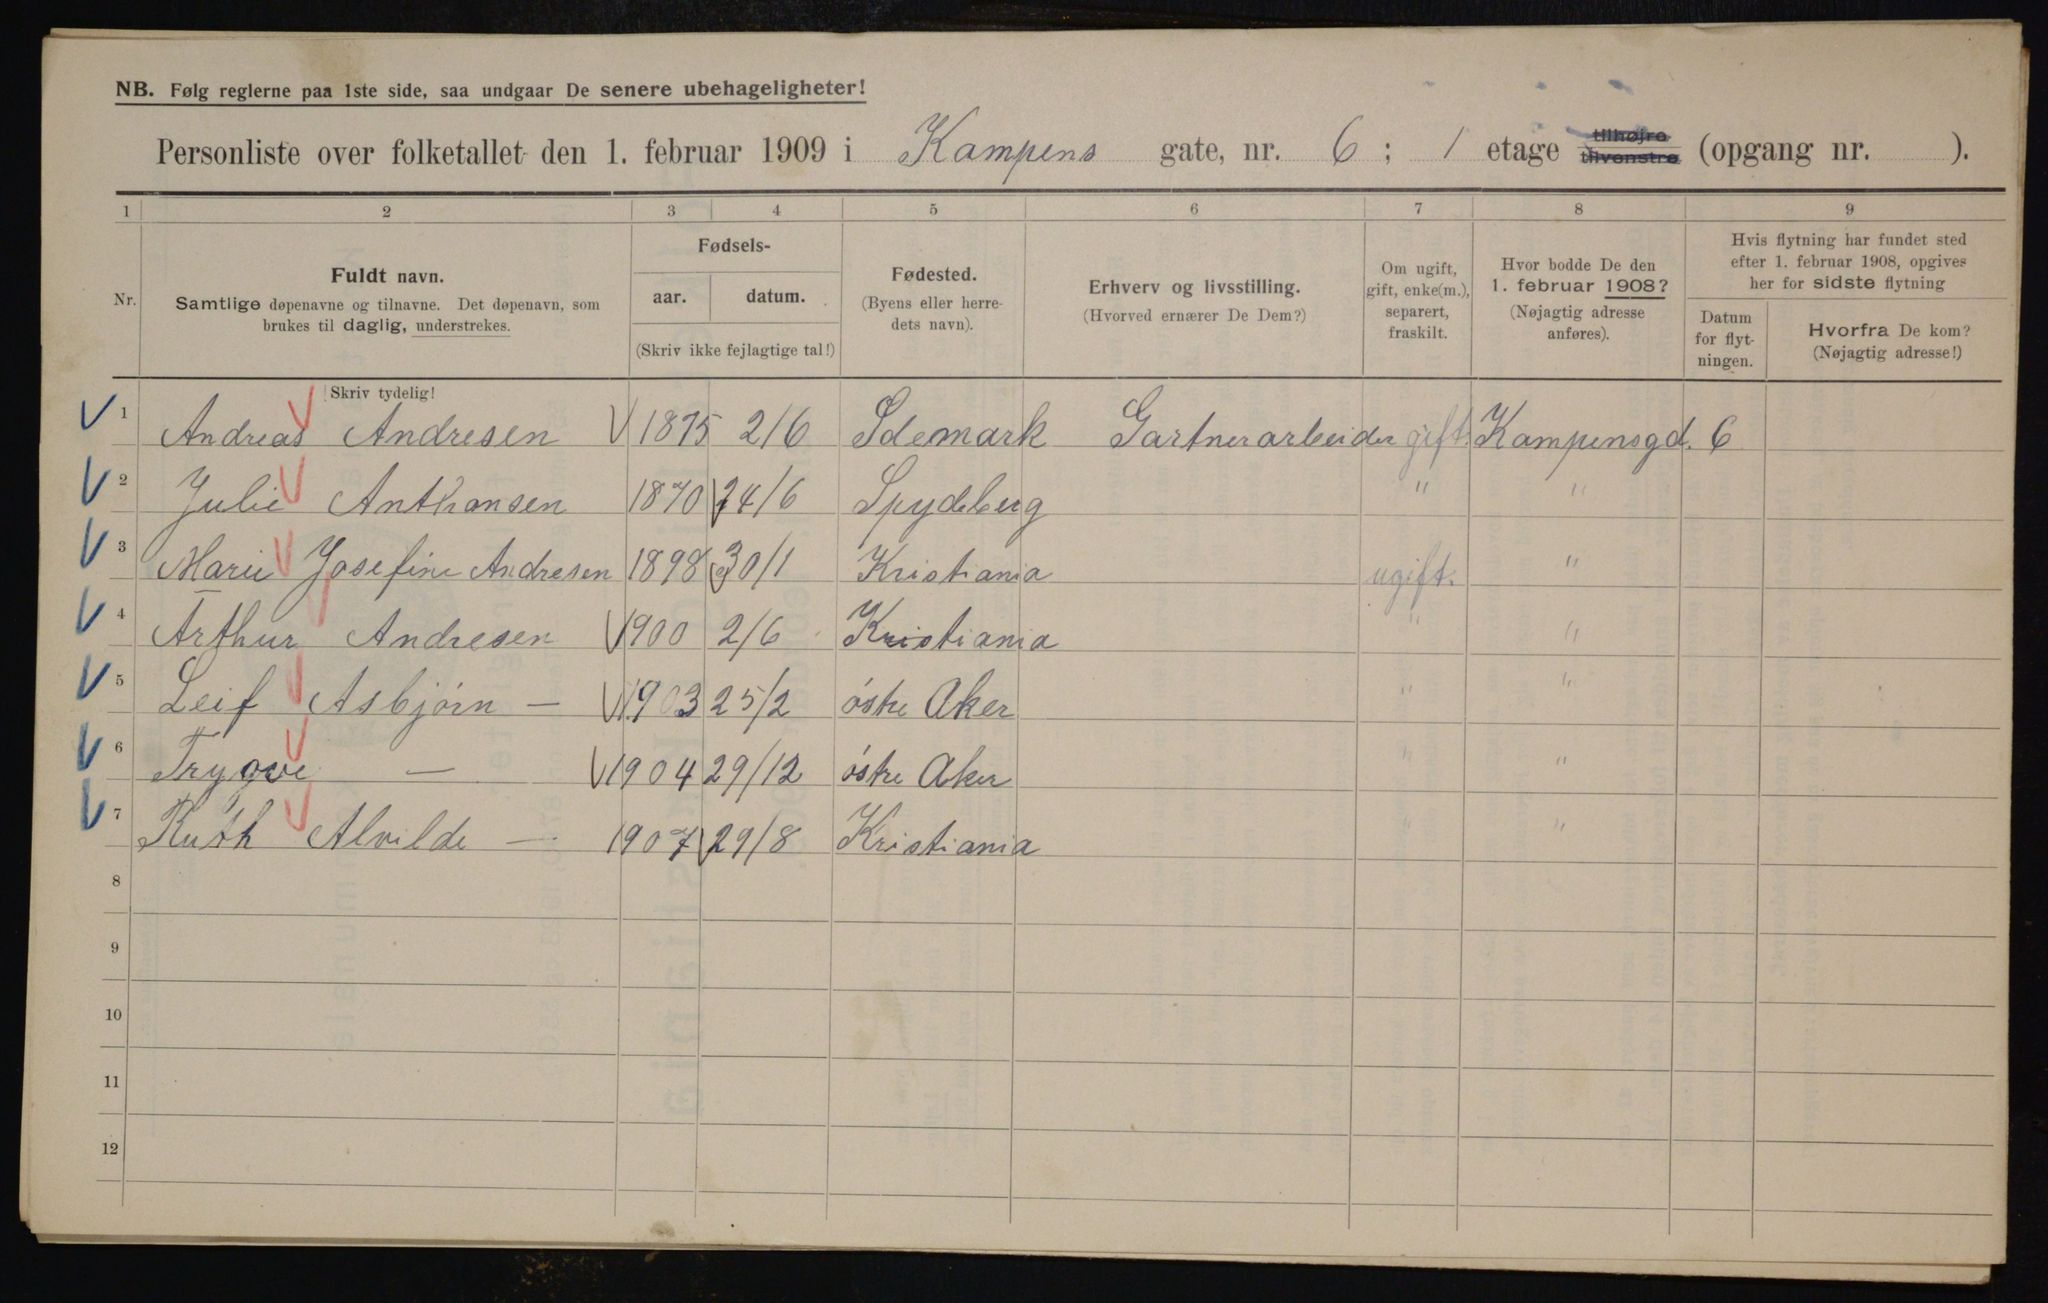 NB. Følg reglerne paa 1ste side, saa undgaar De senere ubehageligheter!
Personliste over folketallet den 1. februar 1909 i Kampens gate, nr. 6 ; 1 etage tilhøjre tilvenstre (opgang nr. ).
1 2 3 4 5 6 7 8 9
Nr.
Fuldt navn.
Samtlige døpenavne og tilnavne. Det døpenavn, som
brukes til daglig, understrekes.
Fødsels-
aar. datum.
(Skriv ikke fejlagtige tal!)
Fødested.
(Byens eller herre-
dets navn).
Erhverv og livsstilling.
(Hvorved ernærer De Dem?)
Om ugift,
gift, enke(m.),
separert,
fraskilt.
Hvor bodde De den
1. februar 1908?
(Nøjagtig adresse
anføres).
Hvis flytning har fundet sted
efter 1. februar 1908, opgives
her for sidste flytning
Datum
for flyt-
ningen.
Hvorfra De kom?
(Nøjagtig adresse!)
Skriv tydelig!
1 Andreas Andresen 1875 2/6 Idemark Gartnerarbeider gift. Kampensgd. 6
2 Julie Anthonsen 1870 24/6 Spydeberg " "
3 Marie Josefine Andresen 1898 30/1 Kristiania ugift. "
4 Arthur Andresen 1900 2/6 Kristiania " "
5 Leif Asbjørn — 1903 25/2 østre Aker " "
6 Trygve — 1904 29/12 østre Aker " "
7 Ruth Alvilde — 1907 29/8 Kristiania "
8
9
10
11
12